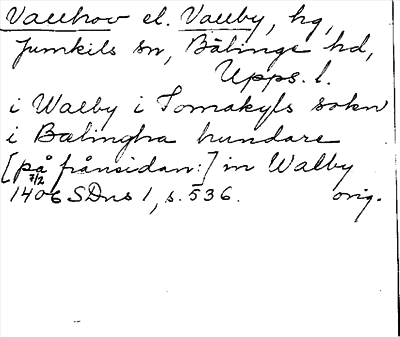 Vallhov el. Vallby, hg,
Jumkils sn, Bälinge hd,
Upps. l.
i Walby i Iomakyls sokn
i Bælingha hundare
[på frånsidan:] in Walby
7/2
1406 SDns 1, s. 536. orig.